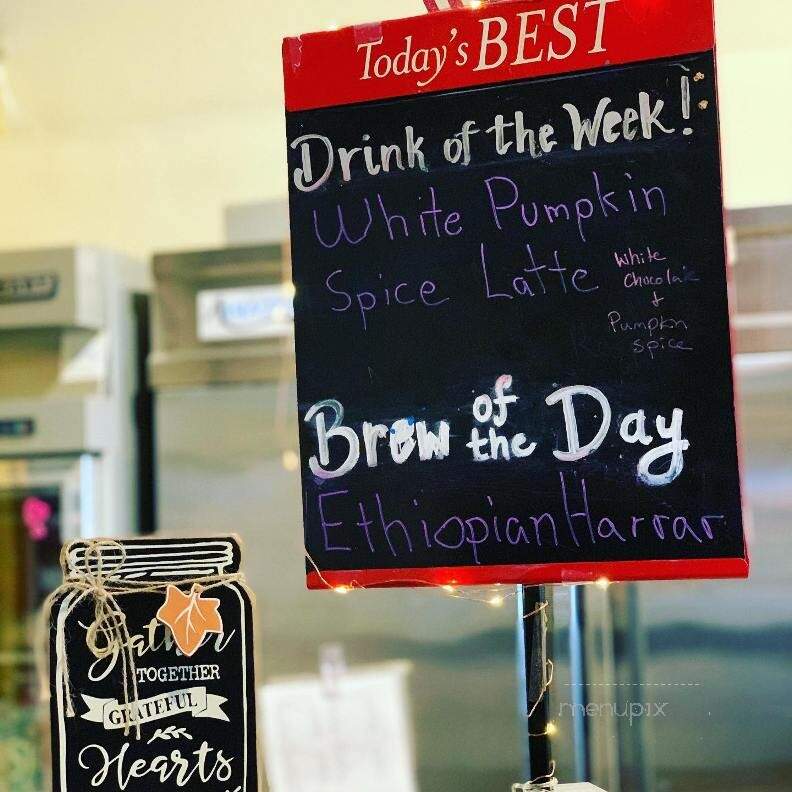 Today's BEST
Drink of the Week!
White Pumpkin
Spice Latte
White
Chocolate
+
Pumpkin
Spice
Brew of the Day
Ethiopian Harrar
Gather
TOGETHER
GRATEFUL
Hearts
menupix